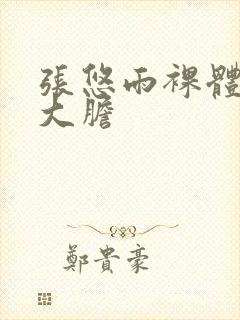 張悠雨裸體
大膽
鄭貴豪